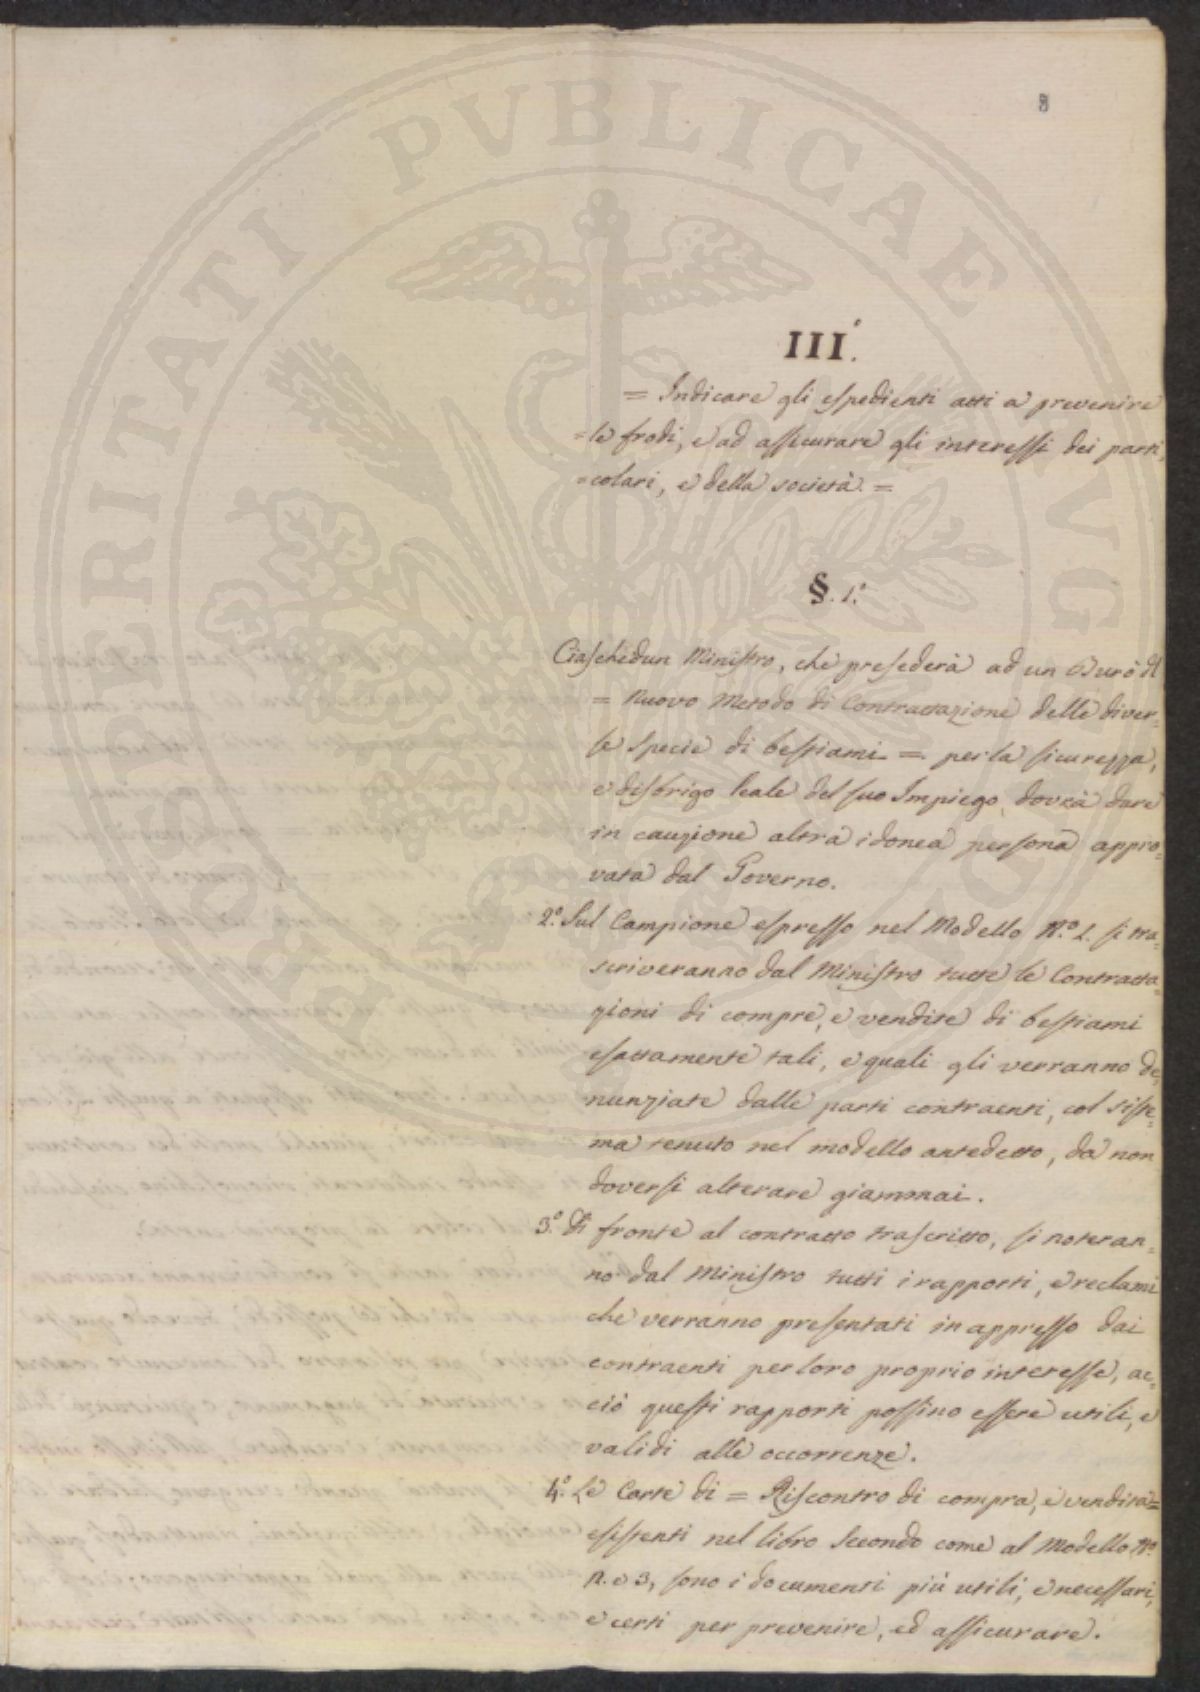 8
PROSPERITATI PVBLICAE AVGENDAE
III.º
= Indicare gli espedienti atti a prevenire
=le frodi, e ad assicurare gli interessi dei parti,
=colari, e della società. =
§. 1.º
Ciaschedun Ministro, che presederà ad un Burò di
= Nuovo Metodo di Contrattazione delle diver-
se specie di bestiami = per la sicurezza,
e disbrigo leale del suo Impiego, dovrà dare
in cauzione altra idonea persona appro-
vata dal Governo.
2.º Sul Campione espresso nel Modello N.º 1. si tra-
scriveranno dal Ministro tutte le Contratta-
zioni di compre, e vendite di bestiami
esattamente tali, e quali gli verranno de-
nunziate dalle parti contraenti, col siste-
ma tenuto nel modello antedetto, da non
doversi alterare giammai.
3.º Di fronte al contratto trascritto, si noteran-
no dal Ministro tutti i rapporti, e reclami
che verranno presentati in appresso dai
contraenti per loro proprio interesse, ac-
ciò questi rapporti possino essere utili, e
validi alle occorrenze.
4.º Le Carte di = Riscontro di compra, e vendita=
esistenti nel libro Secondo come al Modello N.º
2. e 3, sono i documenti più utili, e necessari,
e certi per prevenire, ed assicurare.